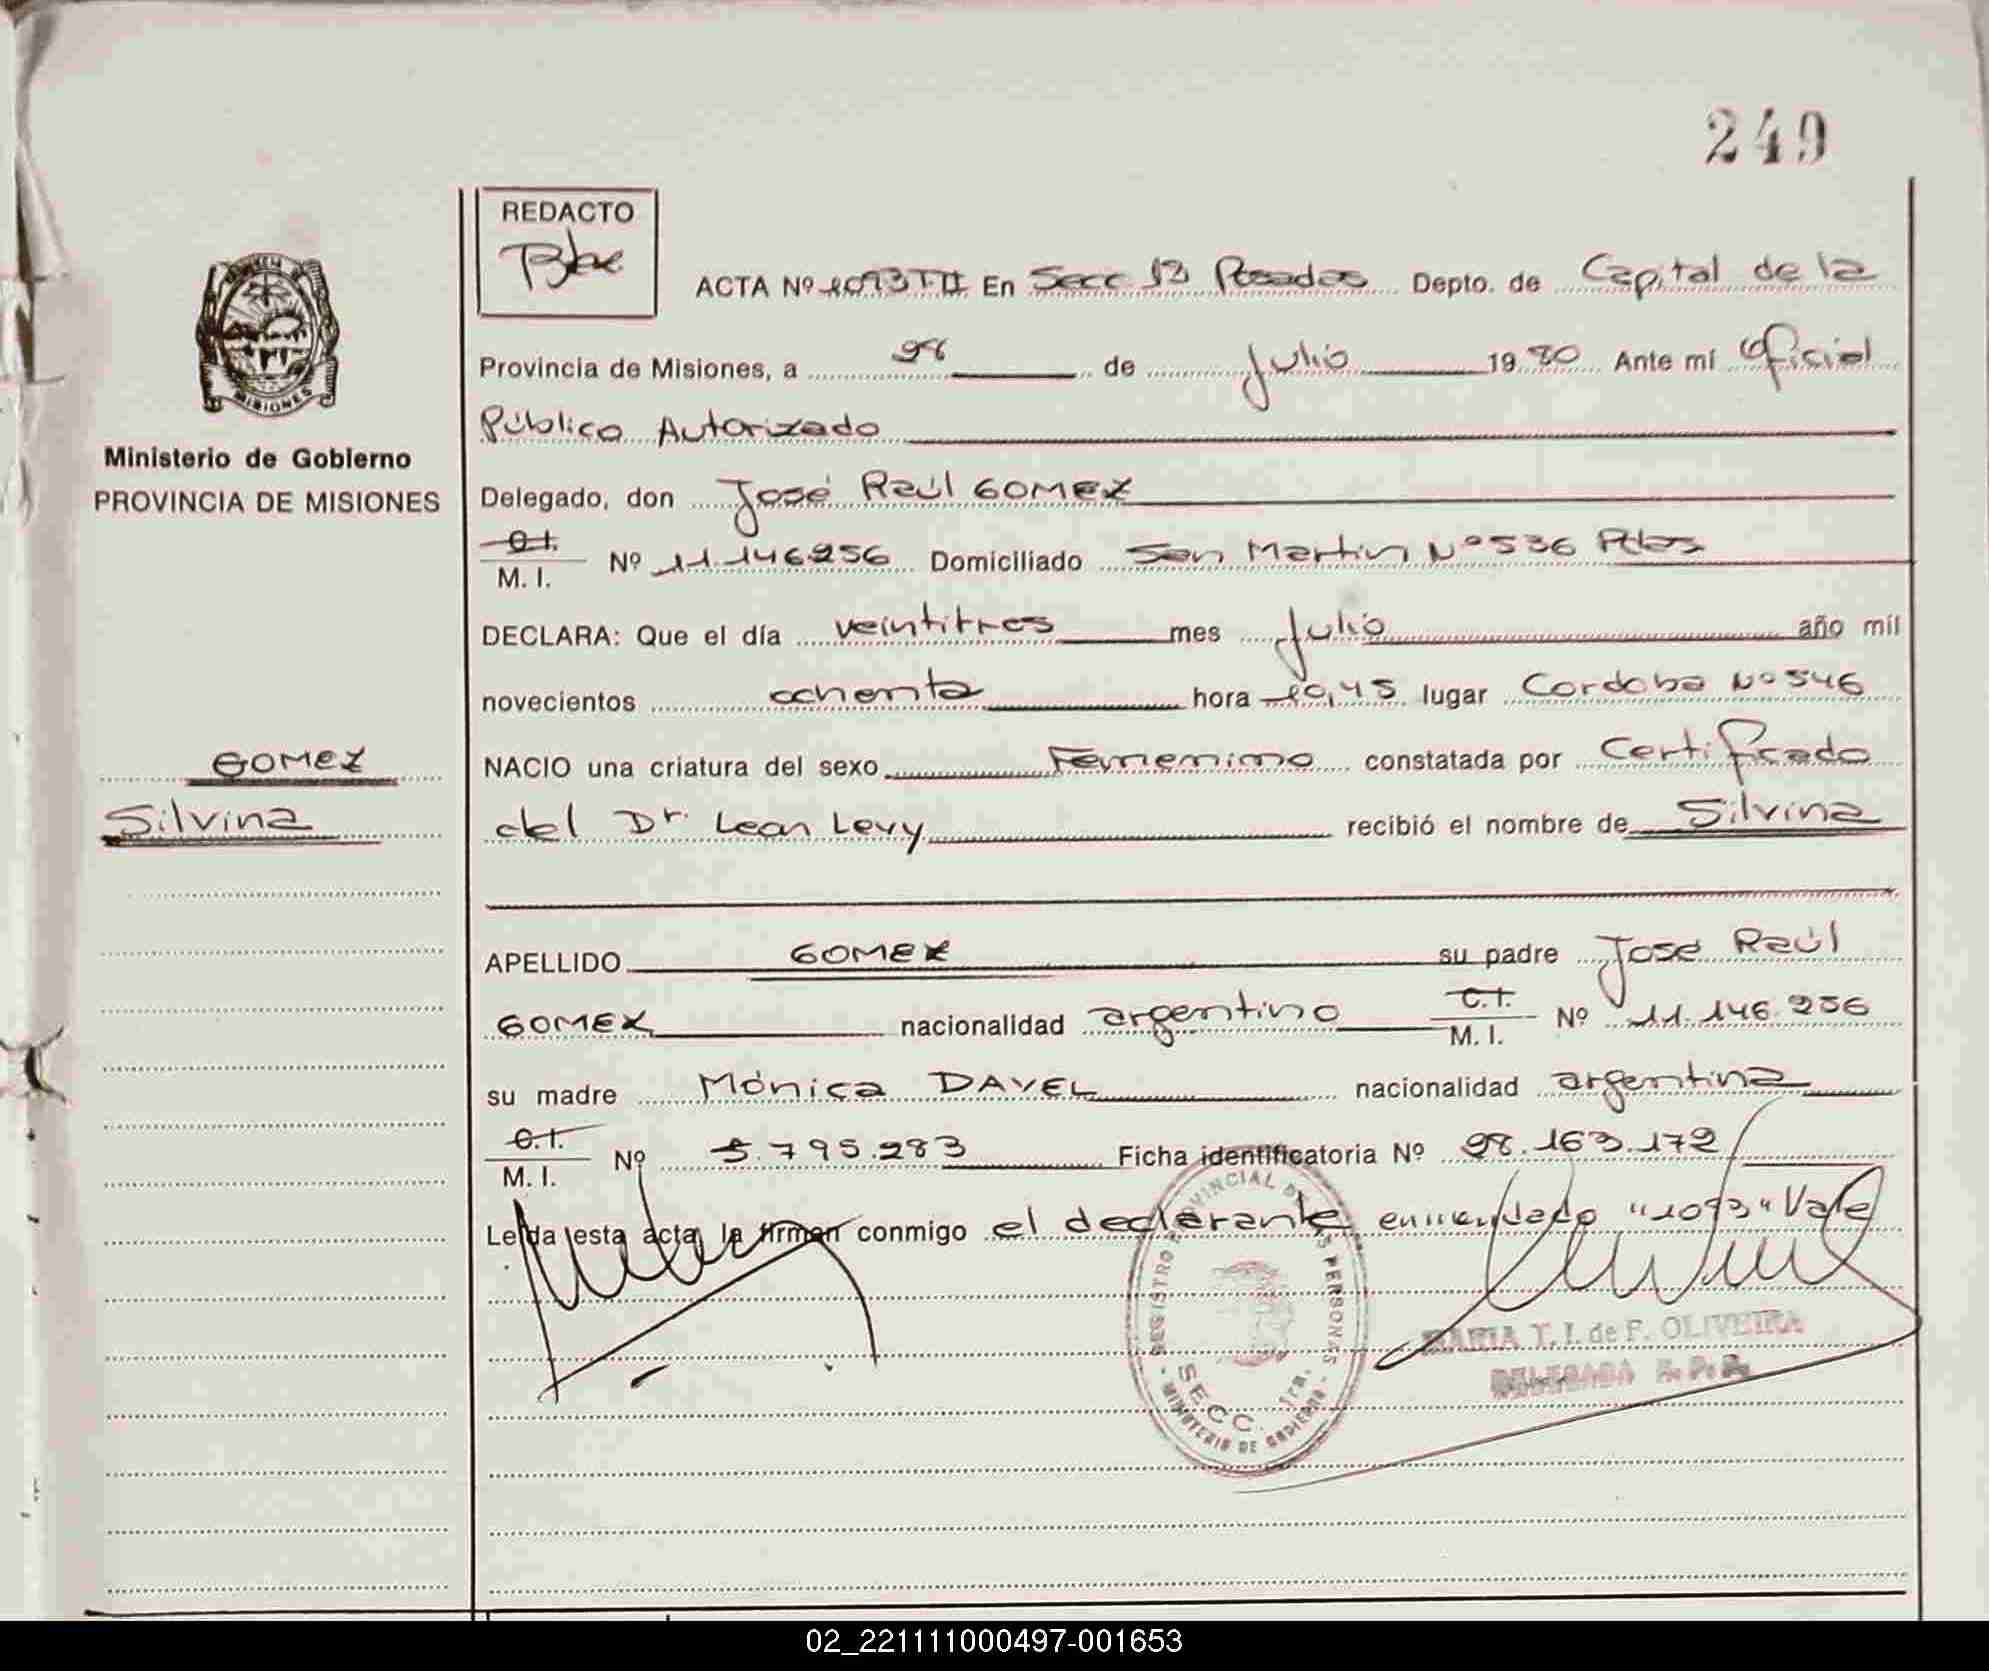 249
REDACTO
ACTA Nº 1093 T·II En Secc 1ª Posadas Depto. de Capital de la
Provincia de Misiones, a 28 de Julio 1980 Ante mí Oficial
Público Autorizado
MISIONES
Ministerio de Gobierno
PROVINCIA DE MISIONES
Delegado, don José Raúl GOMEZ
C.I.
M. I. Nº 11.146.256 Domiciliado San Martin Nº 536 Pdas
DECLARA: Que el día veintitres mes Julio año mil
novecientos ochenta hora 10,45 lugar Cordoba Nº 546
GOMEZ
Silvina
NACIO una criatura del sexo Femenino constatada por Certificado
del Dr. Leon Levy recibió el nombre de Silvina
APELLIDO GOMEZ su padre José Raúl
GOMEZ nacionalidad argentino C.I.
M. I. Nº 11.146.256
su madre Mónica DAVEL nacionalidad argentina
C.I.
M. I. Nº 5.795.283 Ficha identificatoria Nº 28.163.172
Leída esta acta la firman conmigo el declarante enmendado "1093" Vale
REGISTRO PROVINCIAL DE LAS PERSONAS
SECC. 1ra.
MINISTERIO DE GOBIERNO
MARIA T. I. de F. OLIVEIRA
DELEGADA R. P. P.
02_221111000497-001653